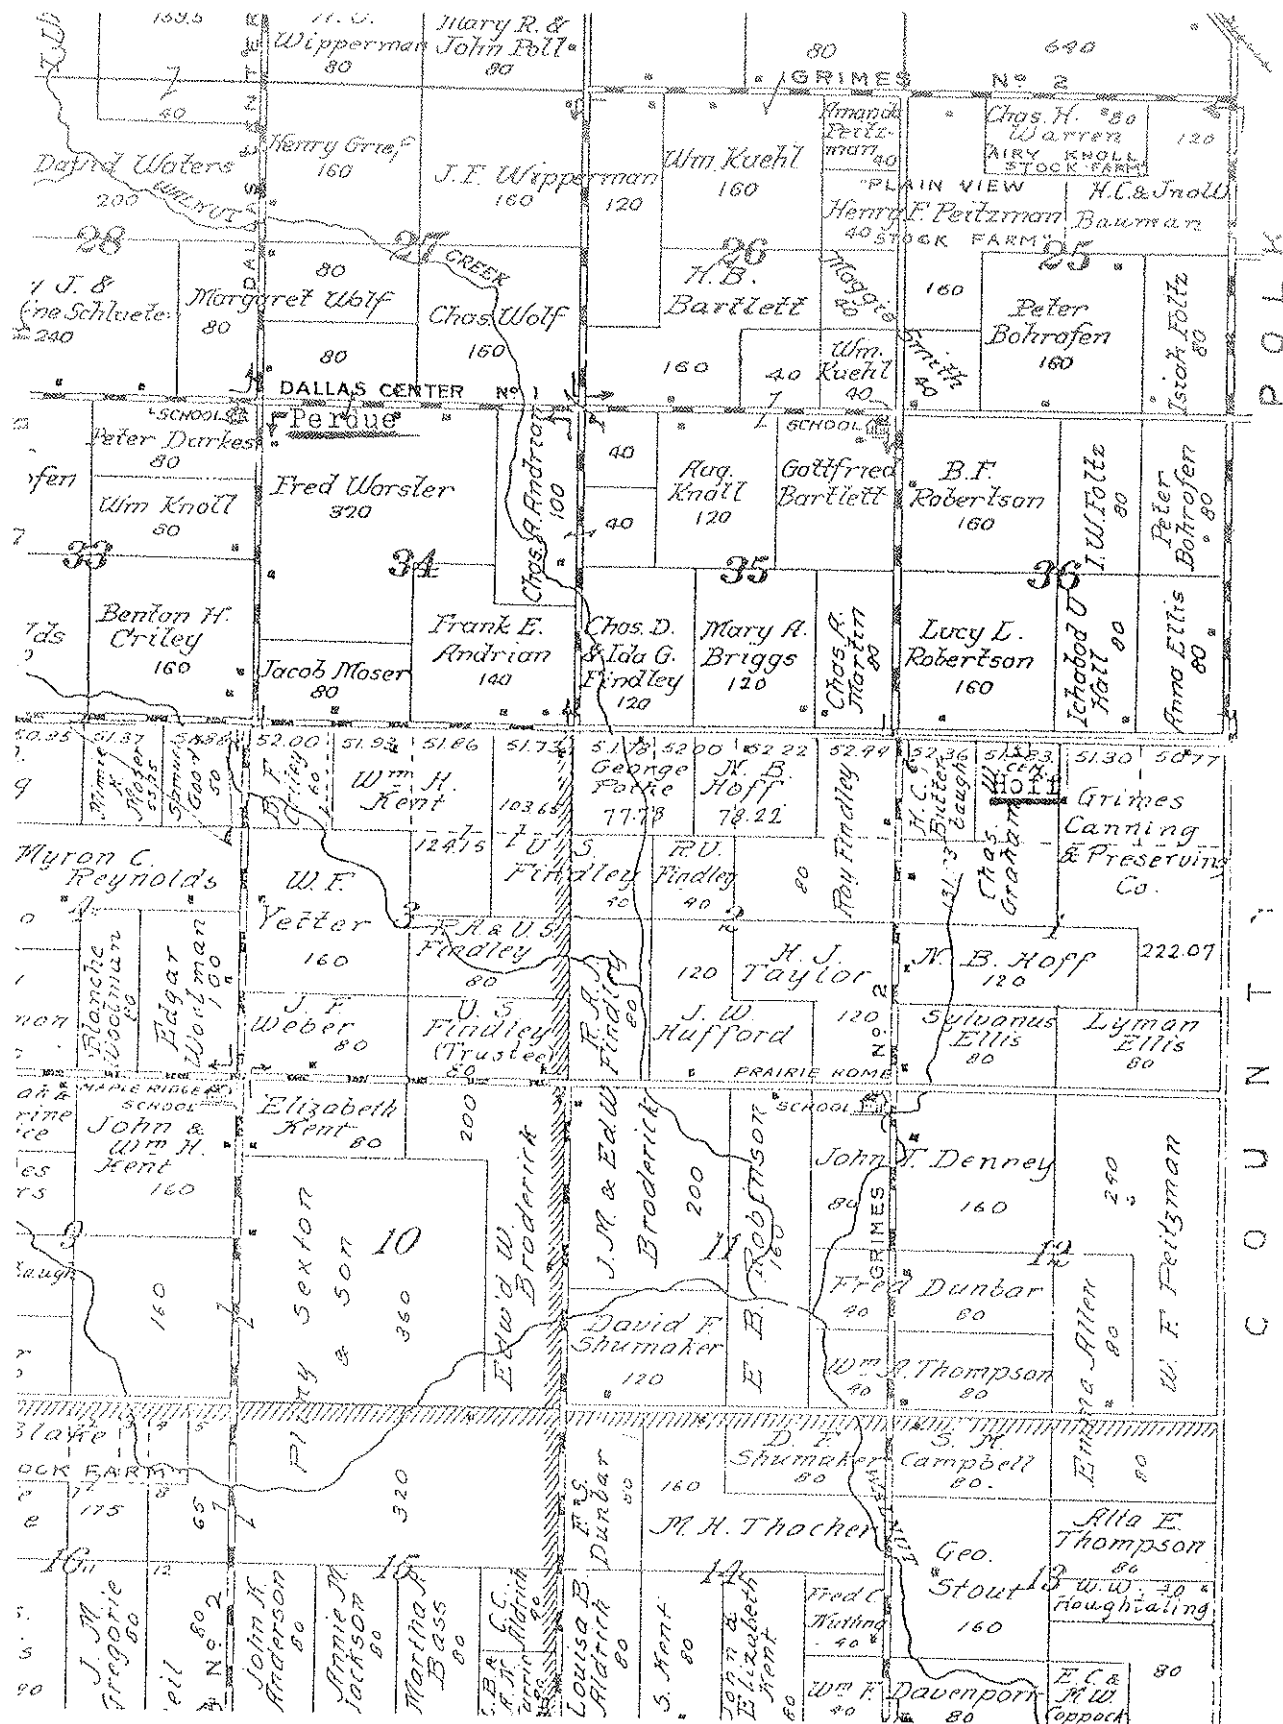 159.5
Wipperman
80
Mary R. &
John Poll
80
80
640
7
40
GRIMES No 2
David Waters
200
WALNUT
DALLAS CENTER
Henry Grief
160
J. F. Wipperman
160
120
Wm Kuehl
160
Amanda
Peitz-
man
40
Chas. H. 80
Warren
AIRY KNOLL
STOCK FARM
120
"PLAIN VIEW
Henry F. Peitzman
40 STOCK FARM"
H.C. & Jno W.
Bauman
28
27
CREEK
26
25
J. &
ine Schluete
240
Margaret Wolf
80
80
80
Chas. Wolf
160
H. B.
Bartlett
160
40
Maggie
40
Smith
80
Wm.
Kuehl
40
160
Peter
Bohrofen
160
Isiah Foltz
80
POLK
DALLAS CENTER No 1
SCHOOL
Perdue
Peter Darkes
80
ofen
Wm Knoll
80
Fred Worsler
320
Chas. A. Andrian
100
40
40
Aug.
Knoll
120
SCHOOL
Gottfried
Bartlett
B. F.
Robertson
160
I. W. Foltz
80
Peter
Bohrofen
80
33
34
35
36
Benton H.
Criley
160
Jacob Moser
80
Frank E.
Andrian
140
Chas. D.
& Ida G.
Findley
120
Mary A.
Briggs
120
Chas. A.
Martin
80
Lucy L.
Robertson
160
Ichabod O
Hall
80
Anna Ellis
80
50.95 51.87 52.00 51.93 51.86 51.73 51.78 52.00 52.22 52.44 52.36 51.83 51.30 50.77
Minnie
K
Moser
Samuel
Goor
50
B. F.
Criley
60
Wm H.
Kent
103.65
George
Pothe
77.78
N. B.
Hoff
78.22
Roy Findley
H. C. C.
Butter
baugh
131.73
CEM.
Hoff
Chas. W.
Graham
Grimes
Canning
& Preserving
Co.
222.07
Myron C.
Reynolds
124.15
U S
Findley
40
R.U.
Findley
40
80
W. F.
Yetter
160
3
R. A. & U. S.
Findley
80
2
1
Blanche
Woodman
60
Edgar
Woodman
100
R. A. J.
Findley
80
120
H. J.
Taylor
N. B. Hoff
120
J. F.
Weber
80
U. S.
Findley
(Trustee)
80
J. W.
Hufford
120
Sylvanus
Ellis
80
Lyman
Ellis
80
PRAIRIE HOME
SCHOOL
MAPLE RIDGE
SCHOOL
John &
Wm H.
Kent
160
Elizabeth
Kent
80
200
Edw'd W.
Broderick
J. M. & Ed. W
Broderick
200
E B. Robinson
160
John T. Denney
80
160
240
W. F. Peitzman
GRIMES No 2
COUNTY
9
10
11
12
160
Pliny Sexton
& Son
360
David F.
Shumaker
120
Fred Dunbar
40
80
Wm A. Thompson
40
80
Emma Allen
80
Blake
OCK FARM
175
65
320
F. S.
Dunbar
80
160
D. F.
Shumaker
80
S. M.
Campbell
80.
80
M. H. Thacher
WALNUT
Alta E.
Thompson
80
16
15
14
13
Geo.
Stout
160
W. W. 40
Houghtaling
J. M
Tregorie
80
eil
80
No 2
John K.
Anderson
80
Annie M.
Jackson
80
Martha A.
Bass
80
C. C.
Aldrich
40
Louisa B.
Aldrich
80
S. Kent
80
John &
Elizabeth
Kent
80
Fred C.
Nutting
40
Wm F. Davenport
40
80
E. C. &
M. W.
Coppock
80